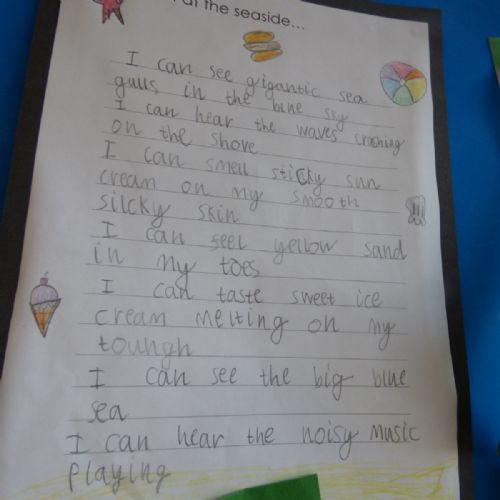 at the seaside...
I can see gigantic sea
gulls in the blue sky
I can hear the waves crashing
on the shore
I can smell sticky sun
cream on my smooth
silcky skin
I can feel yellow sand
in my toes
I can taste sweet ice
cream melting on my
toungh
I can see the big blue
sea
I can hear the noisy music
playing